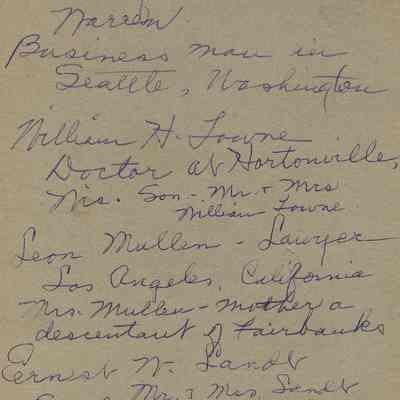 Warren
Business man in
Seattle, Washington
William H. Towne
Doctor at Hortonville,
Wis. Son - Mr. + Mrs
William Towne
Leon Mullen - Lawyer
Los Angeles, California
Mrs. Mullen - mother a
descentant of Fairbanks
Ernest W. Sandt
Mr. + Mrs. Sandt